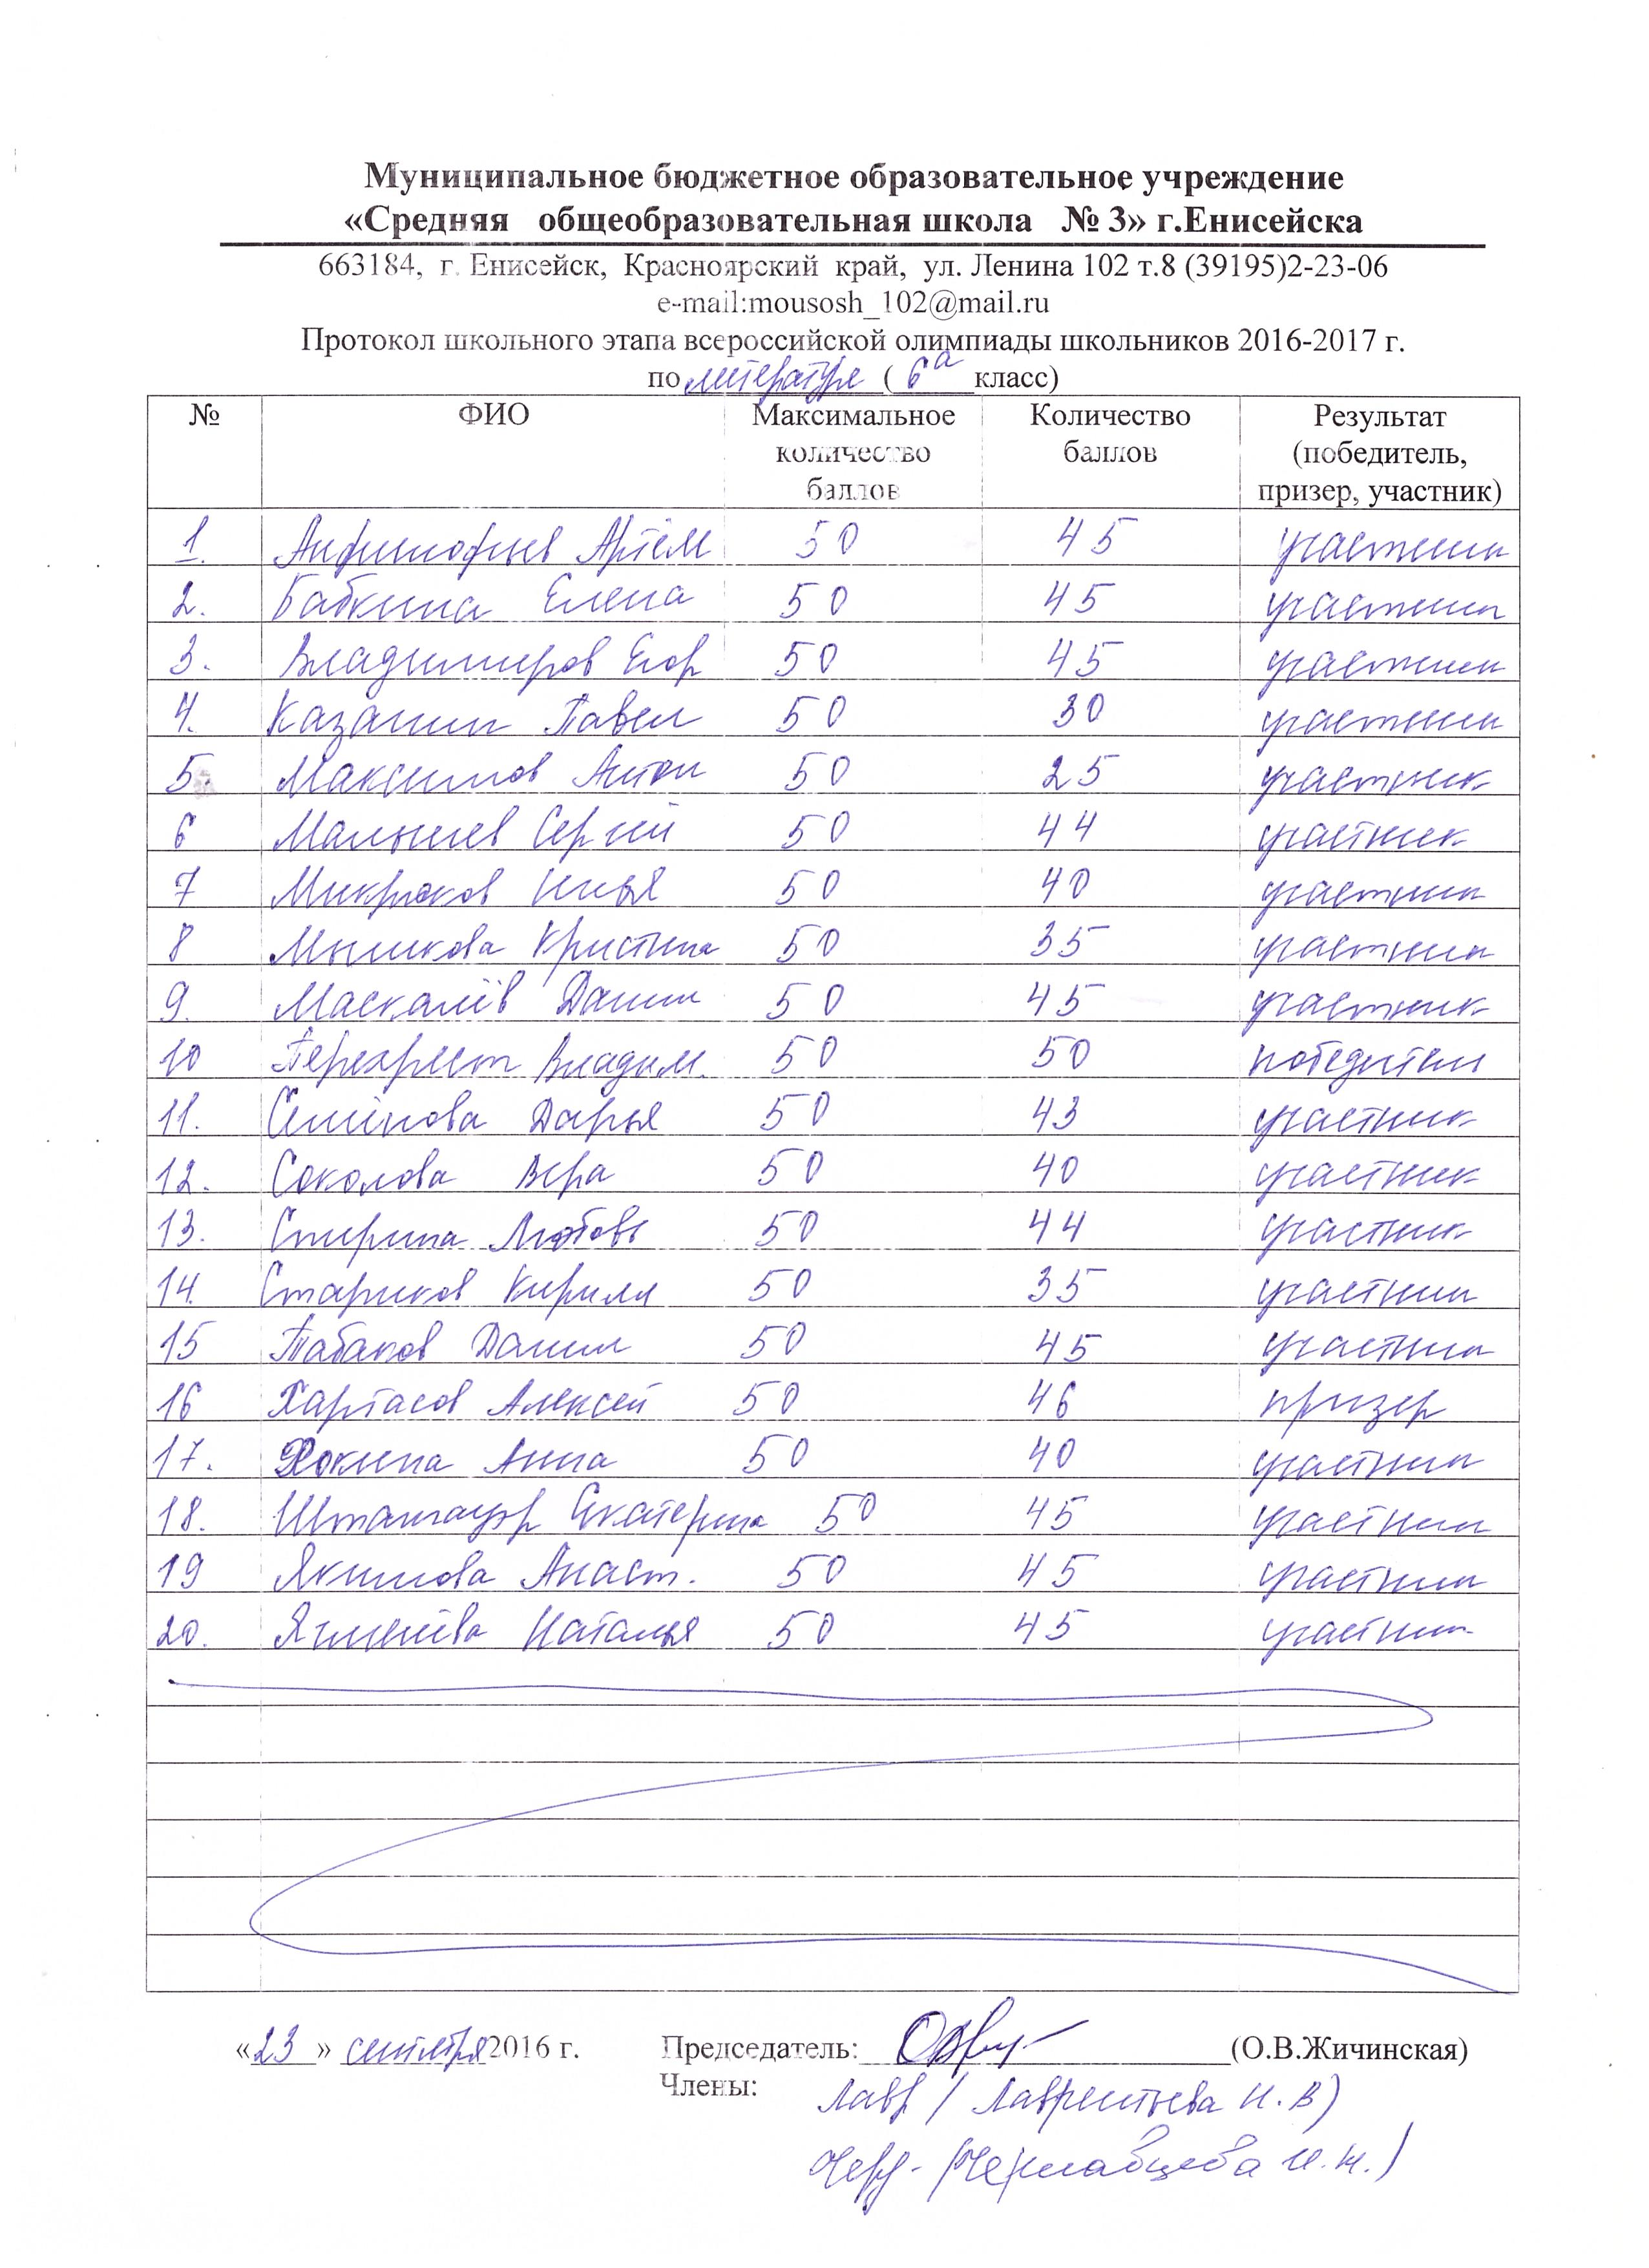 Муниципальное бюджетное образовательное учреждение
«Средняя общеобразовательная школа № 3» г.Енисейска
663184, г. Енисейск, Красноярский край, ул. Ленина 102 т.8 (39195)2-23-06
e-mail:mousosh_102@mail.ru
Протокол школьного этапа всероссийской олимпиады школьников 2016-2017 г.
по литературе ( 6а класс)
№ ФИО Максимальное количество баллов Количество баллов Результат (победитель, призер, участник)
1. Анфилофьев Артём 50 45 участник
2. Бабкина Елена 50 45 участник
3. Владимиров Егор 50 45 участник
4. Казанин Павел 50 30 участник
5 Максимов Антон 50 25 участник
6 Малышев Сергей 50 44 участник
7 Микрюков Илья 50 40 участник
8 Мышкова Кристина 50 35 участник
9. Маскалёв Данил 50 45 участник
10 Перехрест Владим. 50 50 победитель
11. Семёнова Дарья 50 43 участник
12. Соколова Вера 50 40 участник
13. Спирина Любовь 50 44 участник
14. Стариков Кирилл 50 35 участник
15 Табаков Данил 50 45 участник
16 Хартасов Алексей 50 46 призер
17. Анна 50 40 участник
18. Екатерина 50 45 участник
19 Якимова Анаст. 50 45 участник
20. Наталья 50 45 участник
«23» сентября 2016 г. Председатель: (О.В.Жичинская)
Члены: Лавр / Лаврентьева Н.В)
Черд- (Чернавцева И.Н.)